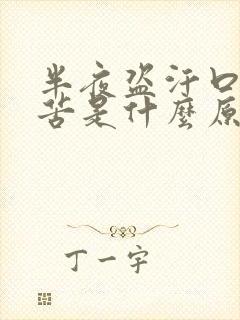 半夜盗汗口
苦是什麼原
丁一宇